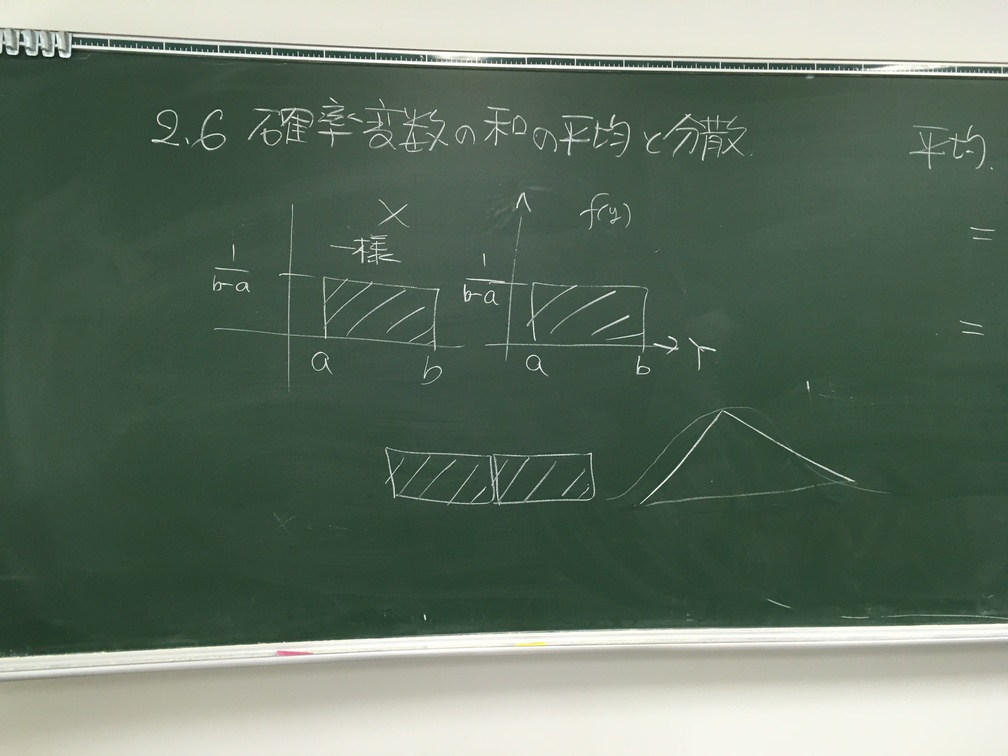 2.6 確率変数の和の平均と分散.
平均.
=
=
X
一様
1/b-a
a b
f(y)
1/b-a
a b
Y